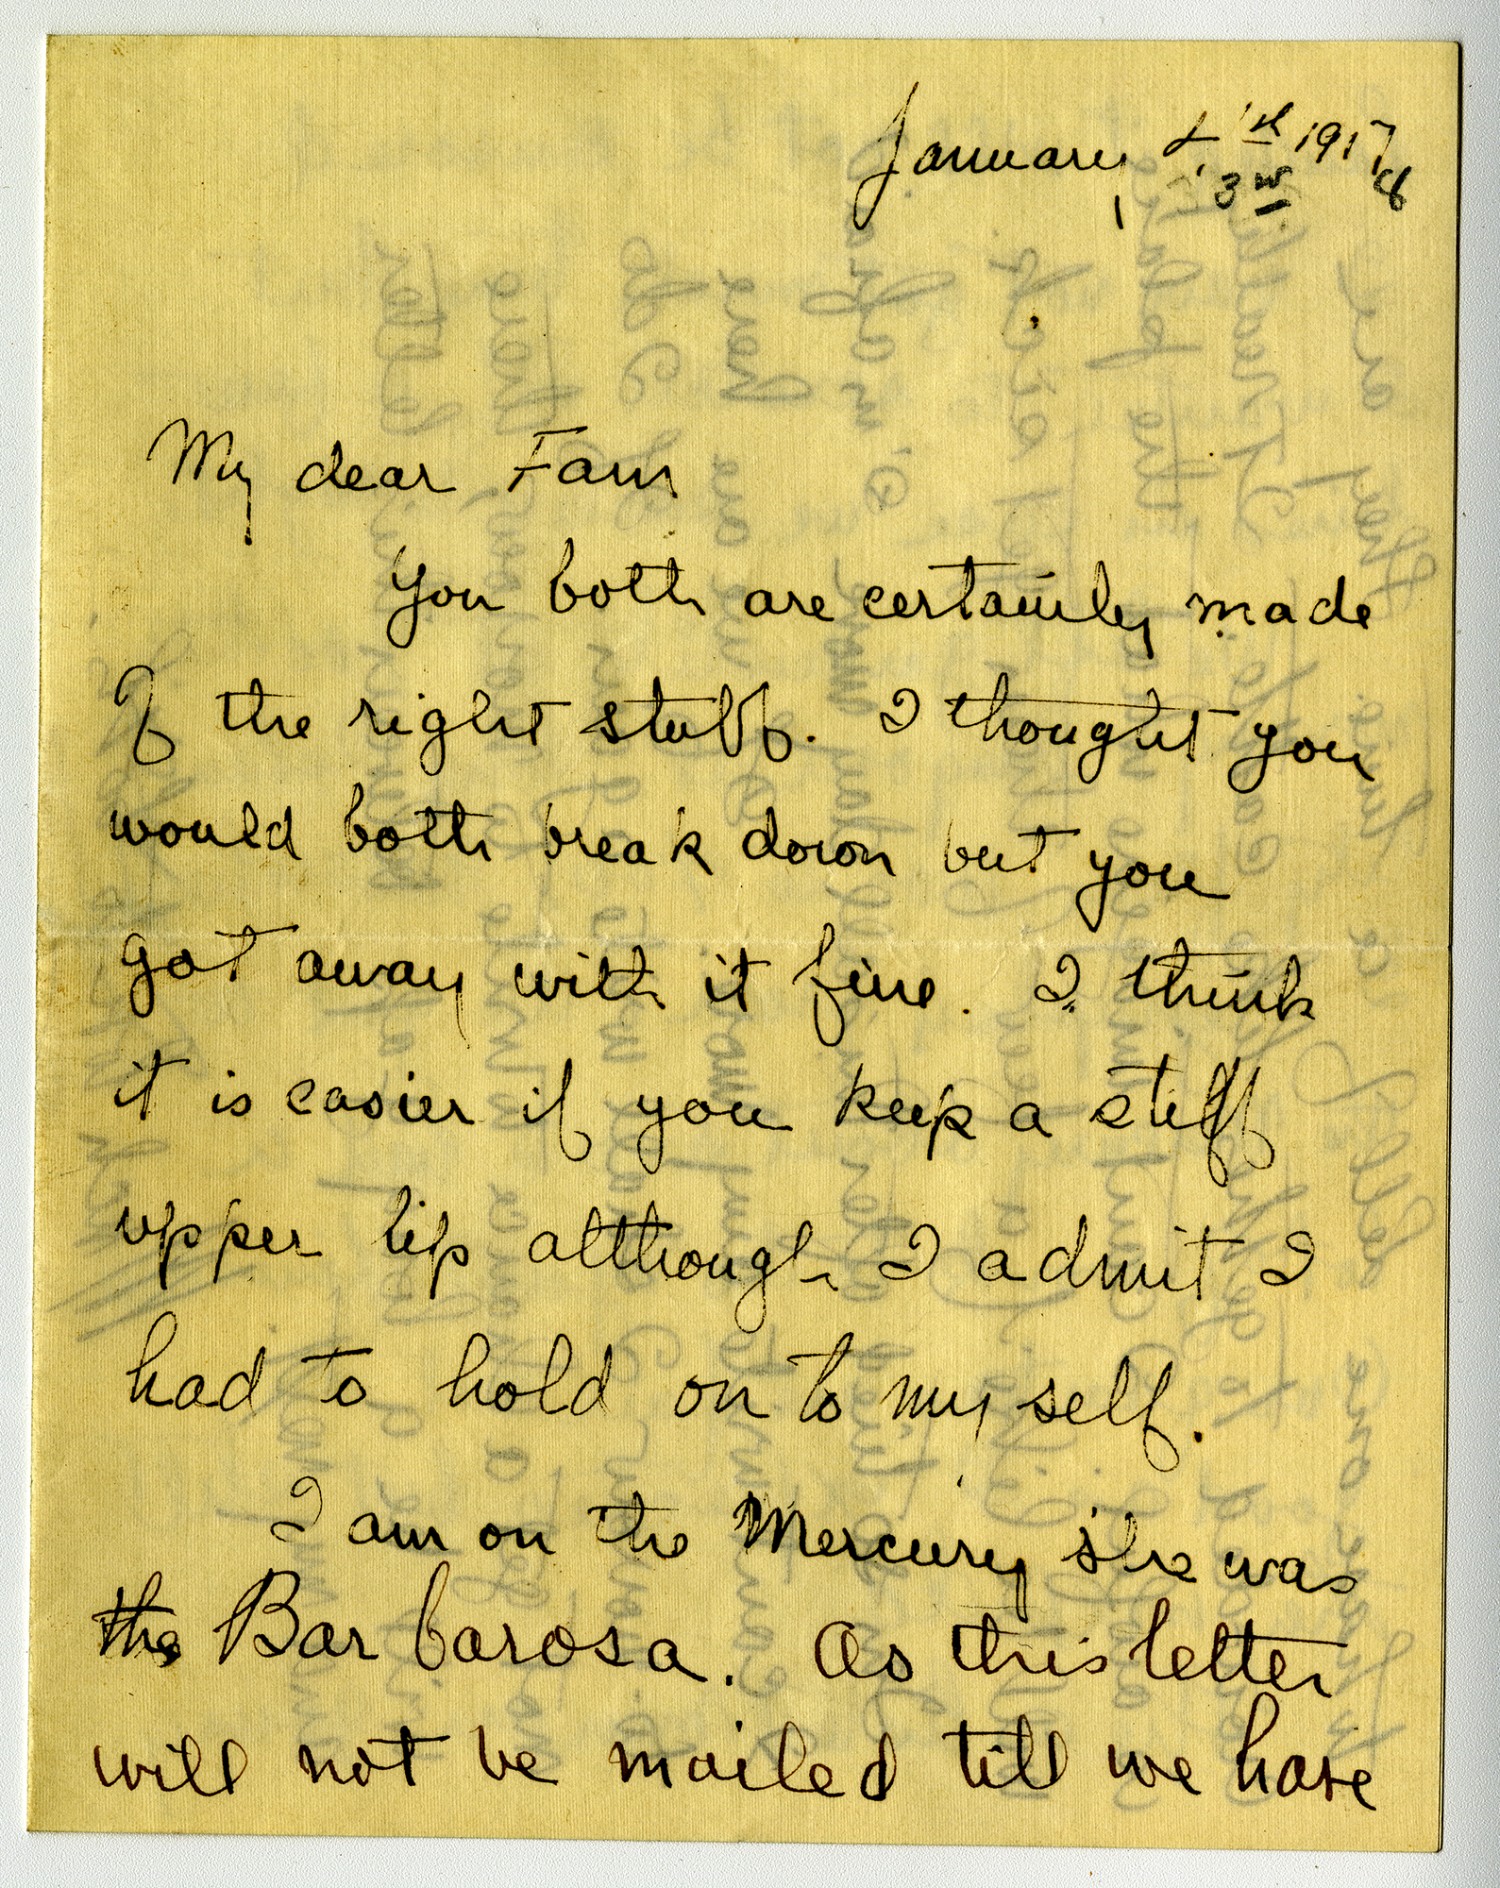 January 1st 1917
3rd 8
My dear Fam
You both are certainly made
of the right stuff. I thought you
would both break down but you
got away with it fine. I think
it is easier if you keep a stiff
upper lip although I admit I
had to hold on to my self.
I am on the Mercury she was
the Barbarosa. As this letter
will not be mailed till we have